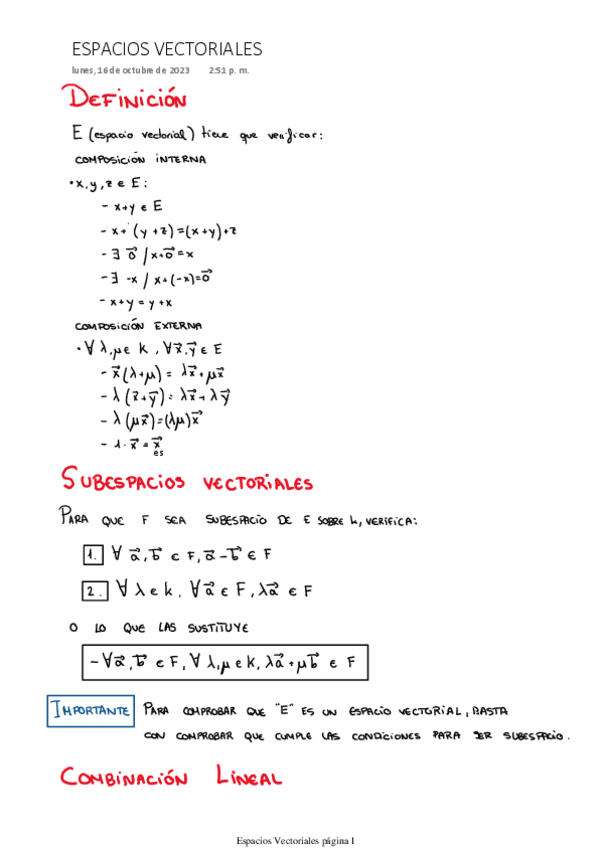 ESPACIOS VECTORIALES
lunes, 16 de octubre de 2023 2:51 p. m.
DEFINICIÓN
E (espacio vectorial) tiene que verificar:
COMPOSICIÓN INTERNA
• x, y, z ∈ E:
- x+y ∈ E
- x+(y+z)=(x+y)+z
- ∃ 0⃗ / x+0⃗=x
- ∃ -x / x+(-x)=0⃗
- x+y = y+x
COMPOSICIÓN EXTERNA
• ∀ λ,μ ∈ k, ∀ x⃗,y⃗ ∈ E
- x⃗(λ+μ) = λx⃗+μx⃗
- λ(x⃗+y⃗) = λx⃗+λy⃗
- λ(μx⃗)=(λμ)x⃗
- 1·x⃗ = x⃗
es
SUBESPACIOS VECTORIALES
PARA QUE F SEA SUBESPACIO DE E SOBRE k, VERIFICA:
1. ∀ a⃗, b⃗ ∈ F, a⃗-b⃗ ∈ F
2. ∀ λ ∈ k, ∀ a⃗ ∈ F, λa⃗ ∈ F
O LO QUE LAS SUSTITUYE
- ∀ a⃗, b⃗ ∈ F, ∀ λ,μ ∈ k, λa⃗+μb⃗ ∈ F
IMPORTANTE PARA COMPROBAR QUE "E" ES UN ESPACIO VECTORIAL, BASTA
CON COMPROBAR QUE CUMPLE LAS CONDICIONES PARA SER SUBESPACIO.
COMBINACIÓN LINEAL
Espacios Vectoriales página 1